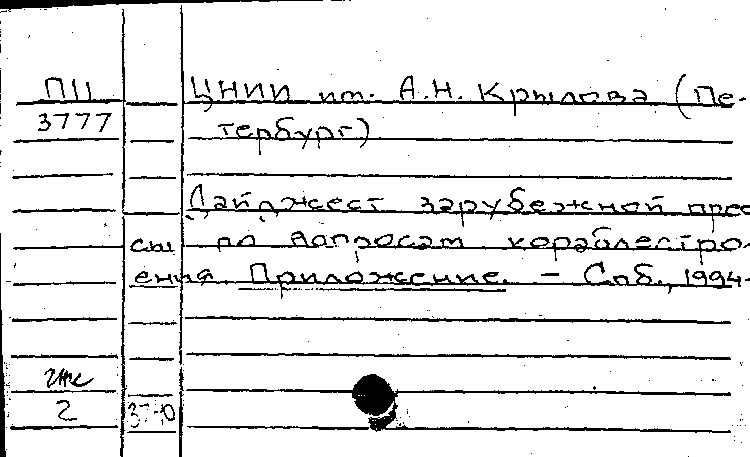 П11 ЦНИИ им. А.Н. Крылова (Пе-
3777 тербург)
Дайджест зарубежной прес
сы по вопросам кораблестро-
ения. Приложение. - Спб., 1994-
2 37-10